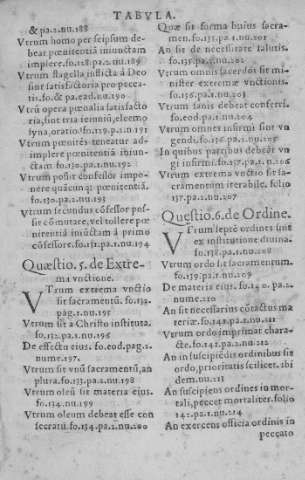 TABVLA.
& pa.2.nu.188
Vtrum homo per seipsum debeat pœnitentiã iniunctam
implere.fo.128.pa.2.nu.189
Vtrum flagella inflicta à Deo
sint satisfactoria pro peccatis.fo & pa.ead.nu.190
Vtrũ opera pœnalia satisfactoria, sint tria ieiuniũ, eleemosyna, oratio? fo.129.p.1.n.191
Vtrum pœnitẽs teneatur adimplere pœnitentiã iniunctam fo.130.pa.1.nu.192
Vtrum possit confessor imponere quãcunq; pœnitentiã.
fo.130.pa.2.nu.193
Vtrum secundus cõfessor possit cõmutare, vel tollere pœnitentiã iniunctam à primo
cõfessore.fo.131.pa.1.nu.194
Quæstio.5. de Extrema vnctione.
Vtrum extrema vnctio
sit sacramentũ. fo.132.
pag.1.nu.195
Vtrum sit a Christo instituta.
fo.132.pa.1.nu.196
De effectu eius. fo.eod.pag.1.
nume.197.
Vtrum sit vnũ sacramentũ, an
plura.fo.133.pa.2.nu.198
Vtrum oleũ sit materia eius.
fo.134.nu.199
Vtrum oleum debeat esse consecratũ fo.134.pa.2.nu.200
Quæ sit forma huius sacramen.fo.135.pa.1.nu.201
An sit de necessitate salutis.
fo.135.pa.2.nu.202
Vtrum omnis sacerdos sit minister extremæ vnctionis.
fo.136.pa.1.nu.203
Vtrum sanis debeat conferri.
fo.eod.pa.1.nu.204
Vtrum omnes infirmi sint vngendi.fo.136.
In quibus partibus debeãt vngi infirmi.fo.137.pa.1.n.206
Vtrum extrema vnctio sit sacramentum iterabile. folio
137.pa.2.nu.207
Quęstio.6. de Ordine.
Vtrum septẽ ordines sint
ex institutione diuina.
fo.138.pa.1.nu.208
Vtrum ordo sit sacramentum.
fo.139.pa.1.nu.209
De materia eius. fo.140.pa.2.
nume.210
An sit necessarius cõtactus materiæ.fo.141.pa.2.nu.211
Vtrum ordo imprimat characte.fo.142.pa.1.nu.212
An in suscipiẽdis ordinibus sit
ordo, prioritatis scilicet. ibidem.nu.213
An suscipiens ordines in mortali, peccet mortaliter. folio
142.pa.2.nu.214
An exercens officia ordinis in
peccato